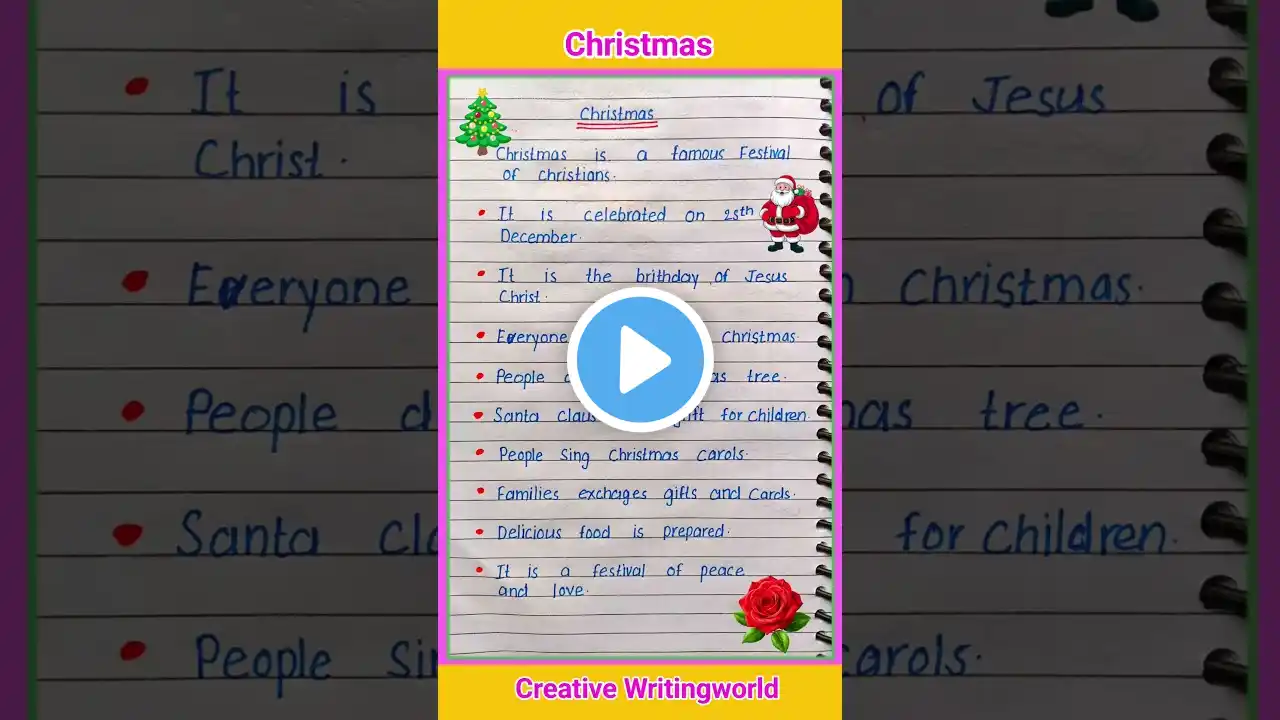 Christmas
Christmas
Christmas is a famous Festival
of christians.
It is celebrated on 25th
December.
It is the brithday of Jesus
Christ.
Everyone Christmas.
People tree.
Santa claus for children.
People Sing Christmas Carols.
Families exchages gifts and Cards.
Delicious food is prepared.
It is a festival of peace
and love.
Creative Writingworld
It is of Jesus
Christ.
Everyone Christmas.
People tree.
Santa for children.
People